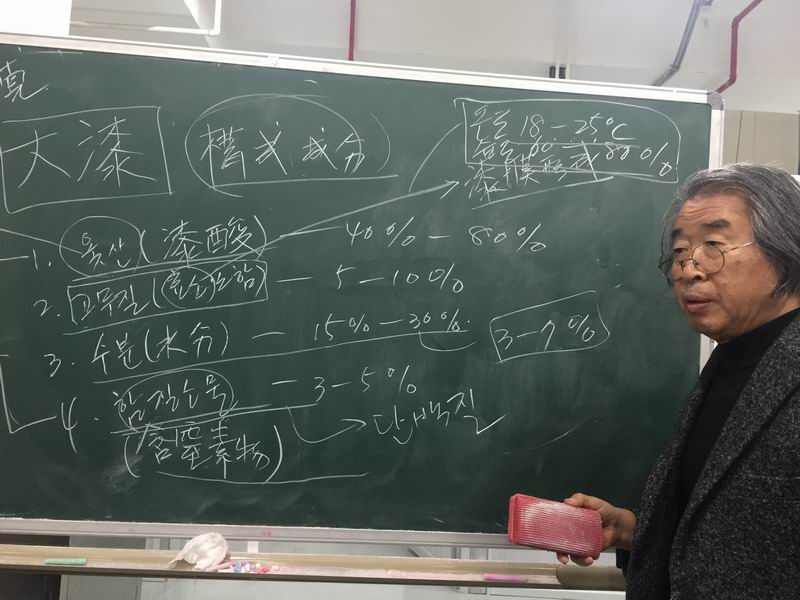 大漆 構成成分
온도 18-25℃
습도 60-80%
漆膜形成
1. 옻산(漆酸) - 40% - 80%
2. 고무질(효소포함) - 5-10%
3. 수분(水分) - 15%-30% 3-7%
4. 함질소물 - 3-5%
(含窒素物) 단백질